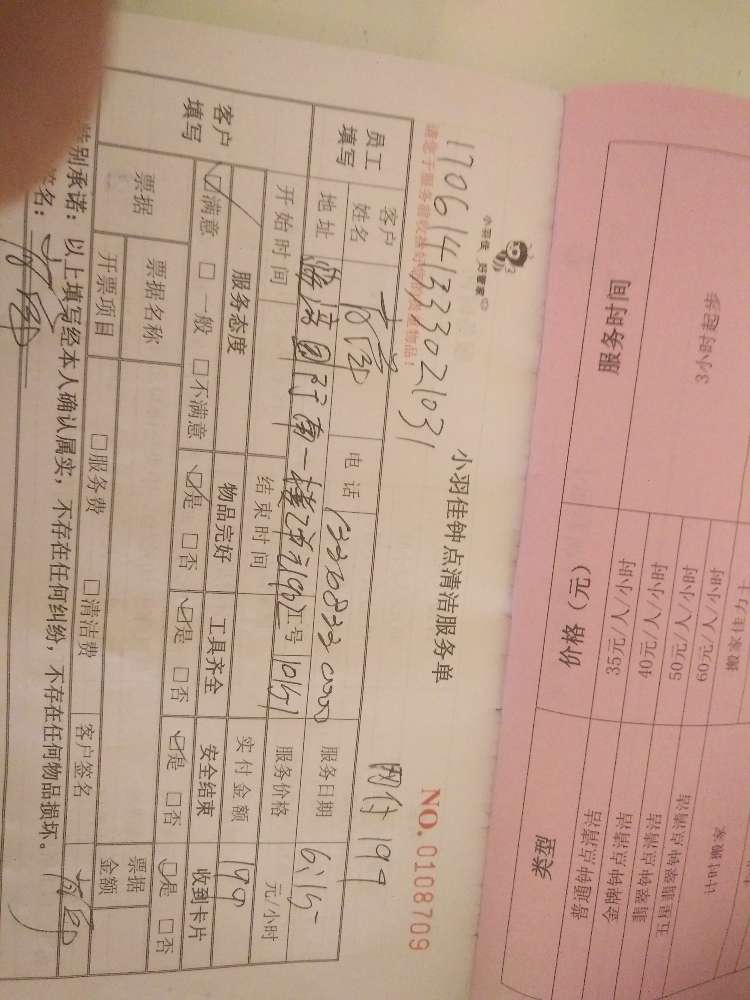 1706141333021031
小羽佳 好管家
小羽佳钟点清洁服务单
网付 199
NO. 0108709
员工
填写
客户
姓名
电话
服务日期
6.15
地址
工号
10151
服务价格
元/小时
开始时间
结束时间
实付金额
199
客户
填写
服务态度
物品完好
工具齐全
安全结束
收到卡片
☑满意 □一般 □不满意
☑是 □否
☑是 □否
☑是 □否
☑是 □否
票据
票据名称
票据
金额
开票项目
□服务费
□清洁费
客户签名
特别承诺：以上填写经本人确认属实，不存在任何纠纷，不存在任何物品损坏。
签名：
类型
价格（元）
服务时间
普通钟点清洁
35元/人/小时
3小时起步
金牌钟点清洁
40元/人/小时
翡翠钟点清洁
50元/人/小时
五星翡翠钟点清洁
60元/人/小时
计时搬家